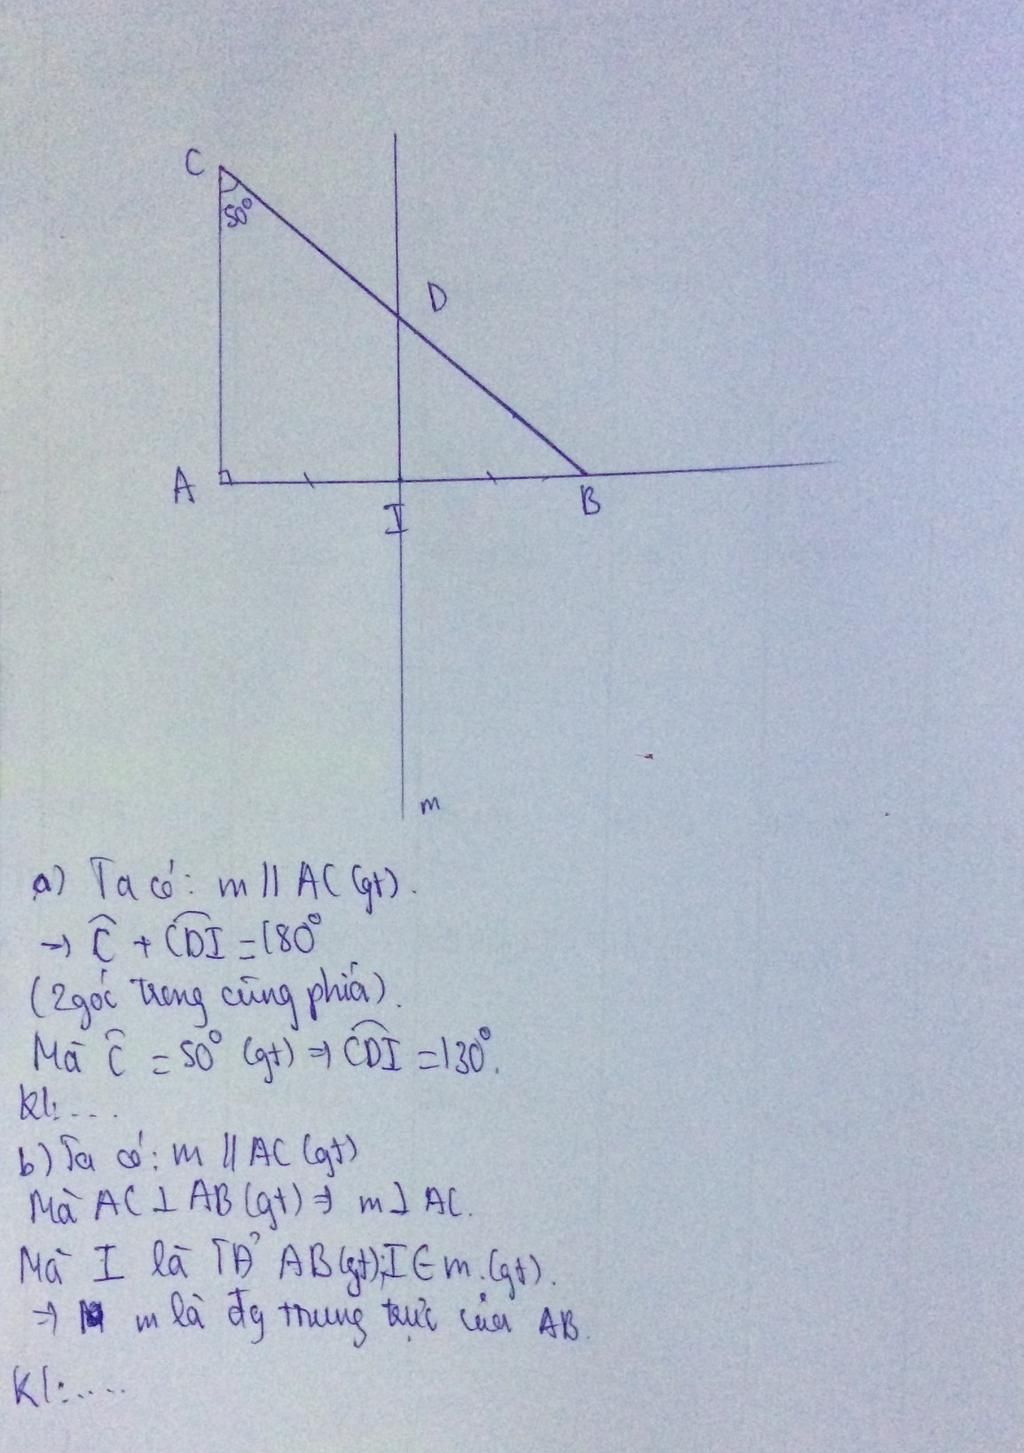 C
50°
D
A
I
B
m
a) Ta có: m // AC (gt).
→ Ĉ + CDI = 180°
(2 góc trong cùng phía).
Mà Ĉ = 50° (gt) ⇒ CDI = 130°.
Kl: ...
b) Ta có: m // AC (gt)
Mà AC ⊥ AB (gt) ⇒ m ⊥ AC.
Mà I là TĐ AB (gt); I ∈ m. (gt).
⇒ m là đg trung trực của AB.
Kl: ....